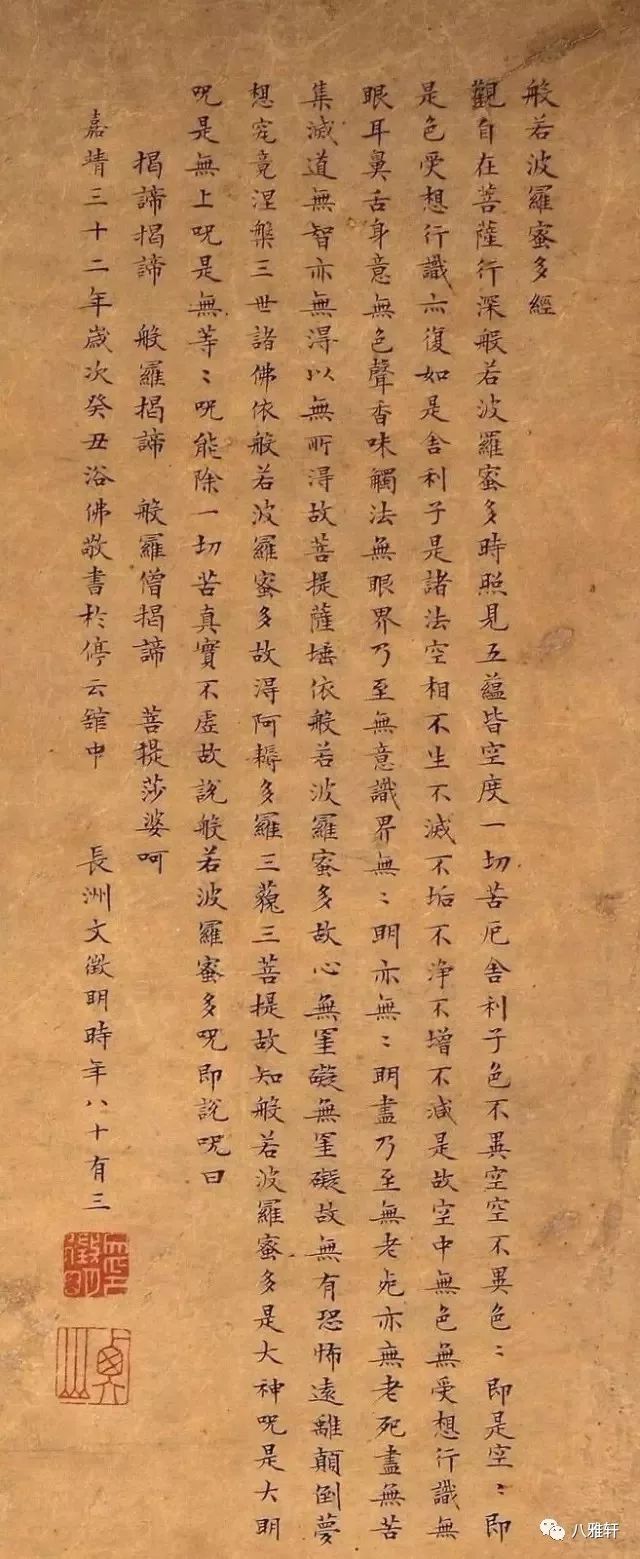 般若波羅蜜多經
觀自在菩薩行深般若波羅蜜多時照見五蘊皆空度一切苦厄舍利子色不異空空不異色〻即是空〻即
是色受想行識亦復如是舍利子是諸法空相不生不滅不垢不淨不增不減是故空中無色無受想行識無
眼耳鼻舌身意無色聲香味觸法無眼界乃至無意識界無〻明亦無〻明盡乃至無老死亦無老死盡無苦
集滅道無智亦無得以無所得故菩提薩埵依般若波羅蜜多故心無罣礙無罣礙故無有恐怖遠離顛倒夢
想究竟涅槃三世諸佛依般若波羅蜜多故得阿耨多羅三藐三菩提故知般若波羅蜜多是大神呪是大明
呪是無上呪是無等〻呪能除一切苦真實不虛故說般若波羅蜜多呪即說呪曰
揭諦揭諦 般羅揭諦 般羅僧揭諦 菩提莎婆呵
嘉靖三十二年歲次癸丑浴佛敬書於停云館中 長洲文徵明時年八十有三
八雅轩